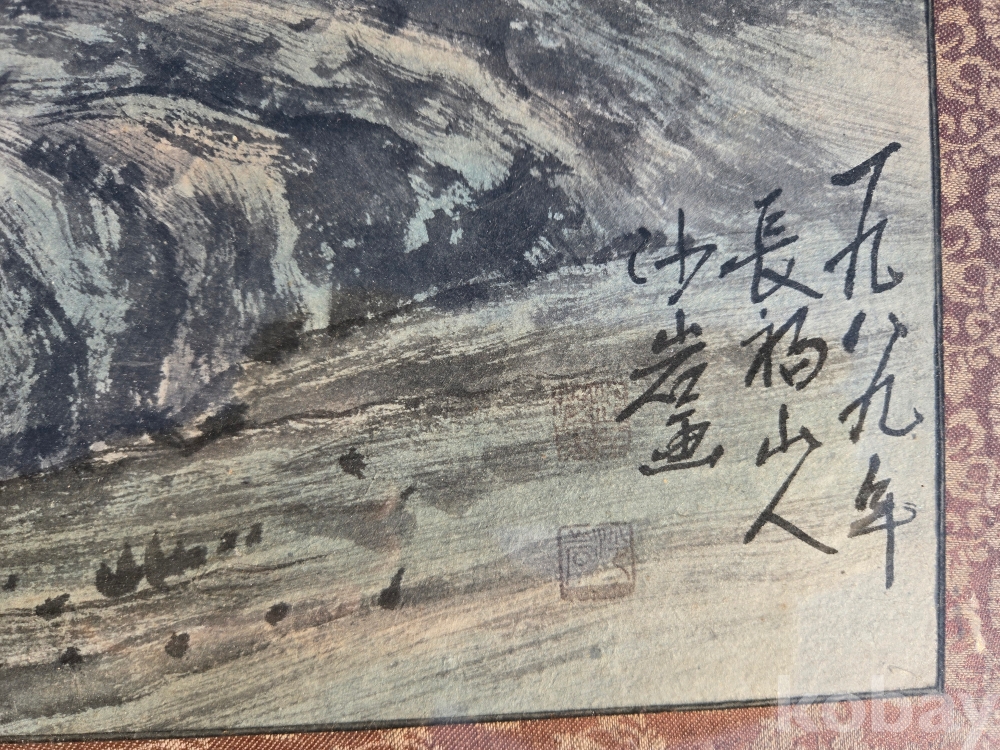 一九八九年
長福山人
沙岩画
kobay